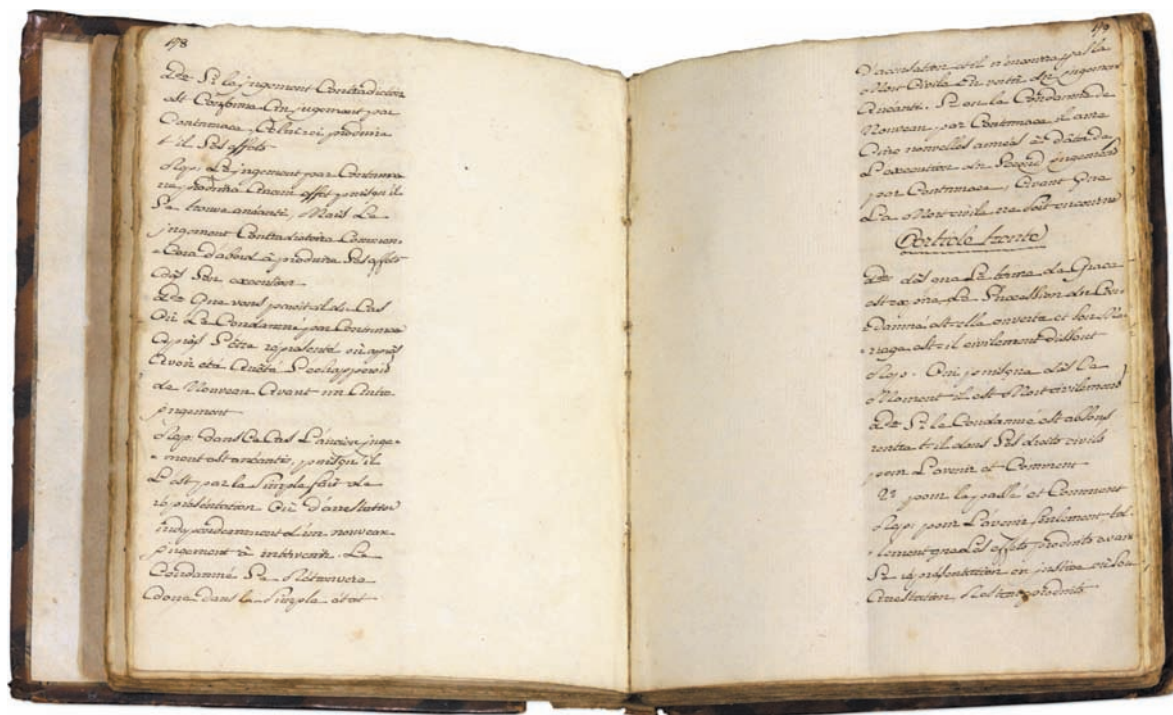 178
Dde Si le jugement Contradictoire
est Conforme Au jugement par
Contumace, Celui ci produira
t'il Ses effets
Rep: Le jugement par Contumace
ne produira Aucun effet puisqu'il
Se trouve anéanti, Mais Le
jugement Contradictoire Commen-
-Cera d'abord à produire Ses effets
dès Son execution
Dde Que vous paroit il du Cas
Où Le Condamné par Contumace
Après S'être représenté ou après
Avoir été Arrêté S'echapperoit
de Nouveau Avant un Autre
jugement
Rep: dans Ce Cas L'ancien juge-
-ment est anéanti, puisqu'il
L'est par le Simple fait de
représentation Où d'arrestation
independemment d'un nouveau
jugement à intervenir. Le
Condamné Se Retrouvera
donc dans le Simple état
179
D'accusation et il n'encourra pas la
Mort Civile En vertu du jugement
Anéanti. Si on le Condamne de
Nouveau par Contumace il aura
Cinq nouvelles années à dater de
L'execution du Second jugement
par Contumace, Avant Que
La Mort civile ne Soit encourue
Article trente
Dde dès que Le terme de Grace
est expiré, La Succession du Con-
-damné est elle ouverte et Son Ma-
-riage est il civilement dissout
Rep. Oui puisque dès Ce
Moment il est Mort civilement
Dde Si le Condamné est absous,
rentre t-il dans Ses droits civils
pour L'avenir et Comment
2° pour le passé et Comment
Rep: pour L'avenir Seulement tel-
-lement que Les effets produits avant
Sa représentation en justice ou Son
Arrestation Restent produits